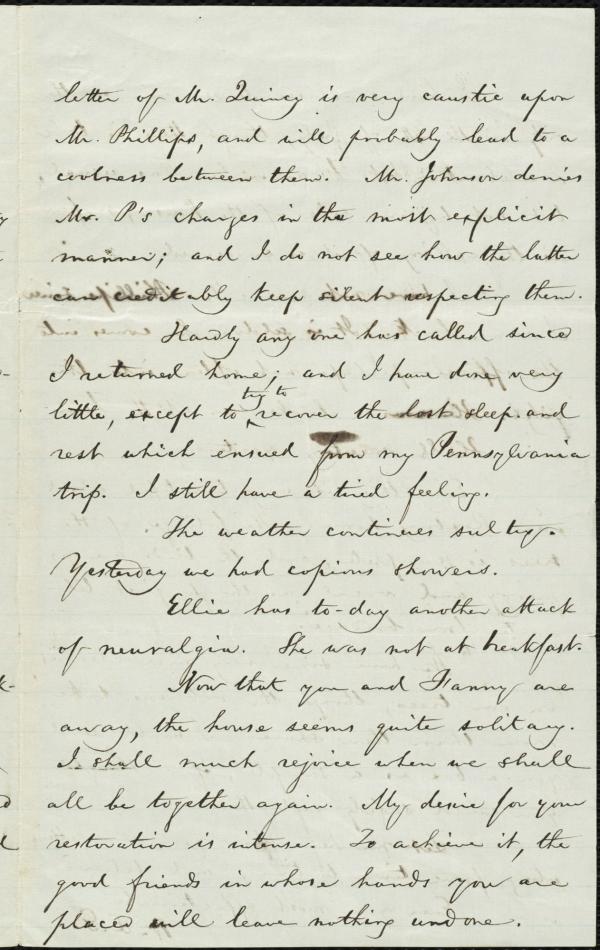 letter of Mr. Quincy is very caustic upon
Mr. Phillips, and will probably lead to a
coolness between them. Mr. Johnson denies
Mr. P's charges in the most explicit
manner; and I do not see how the latter
can creditably keep silent respecting them.
Hardly any one has called since
I returned home; and I have done very
little, except to try to recover the lost sleep and
rest which ensued from my Pennsylvania
trip. I still have a tired feeling.
The weather continues sultry.
Yesterday we had copious showers.
Ellie has to-day another attack
of neuralgia. She was not at breakfast.
Now that you and Fanny are
away, the house seems quite solitary.
I shall much rejoice when we shall
all be together again. My desire for your
restoration is intense. To achieve it, the
good friends in whose hands you are
placed will leave nothing undone.